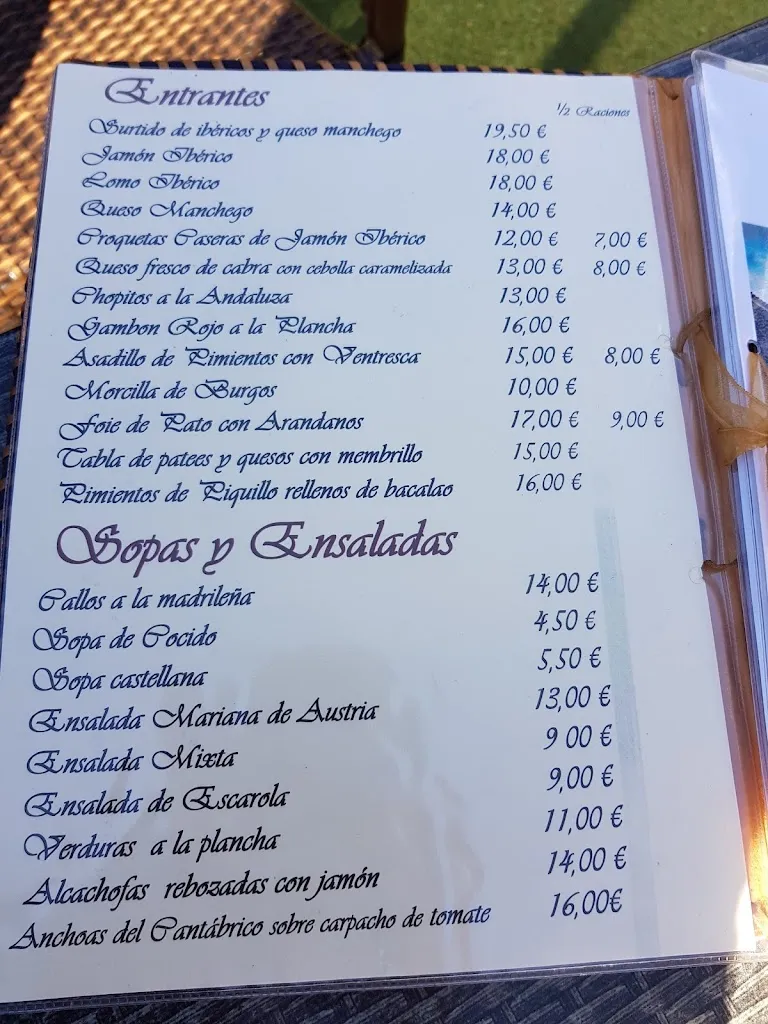 Entrantes
½ Raciones
Surtido de ibéricos y queso manchego 19,50 €
Jamón Ibérico 18,00 €
Lomo Ibérico 18,00 €
Queso Manchego 14,00 €
Croquetas Caseras de Jamón Ibérico 12,00 € 7,00 €
Queso fresco de cabra con cebolla caramelizada 13,00 € 8,00 €
Chopitos a la Andaluza 13,00 €
Gambon Rojo a la Plancha 16,00 €
Asadillo de Pimientos con Ventresca 15,00 € 8,00 €
Morcilla de Burgos 10,00 €
Foie de Pato con Arandanos 17,00 € 9,00 €
Tabla de patees y quesos con membrillo 15,00 €
Pimientos de Piquillo rellenos de bacalao 16,00 €
Sopas y Ensaladas
Callos a la madrileña 14,00 €
Sopa de Cocido 4,50 €
Sopa castellana 5,50 €
Ensalada Mariana de Austria 13,00 €
Ensalada Mixta 9 00 €
Ensalada de Escarola 9,00 €
Verduras a la plancha 11,00 €
Alcachofas rebozadas con jamón 14,00 €
Anchoas del Cantábrico sobre carpacho de tomate 16,00€